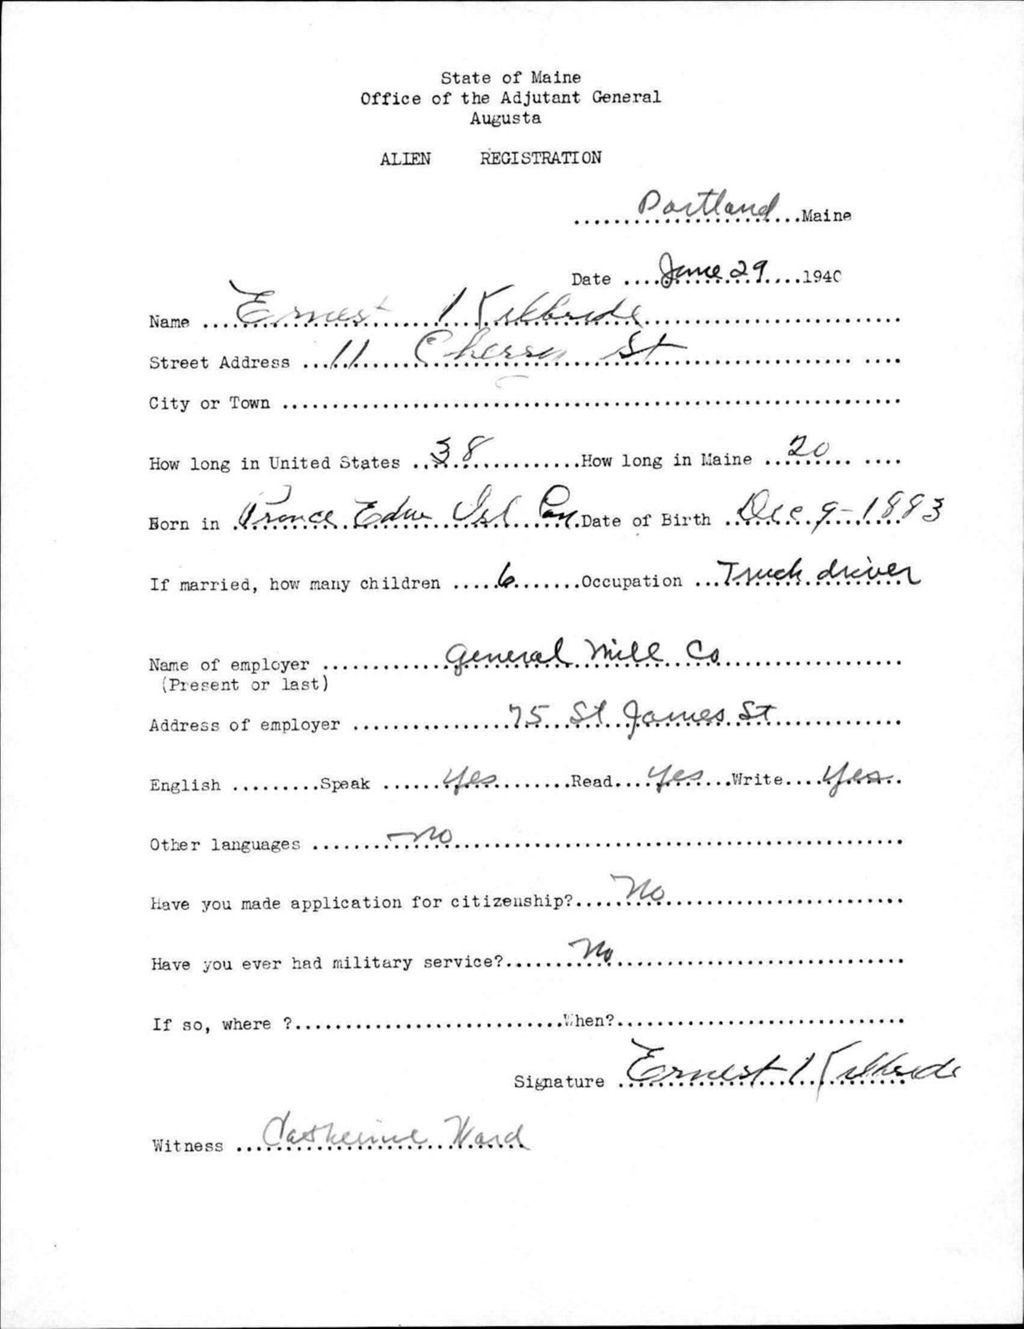 State of Maine
Office of the Adjutant General
Augusta
ALIEN REGISTRATION
......Portland...Maine
Date ....June 29....1940
Name ...Ernest Kilbride...
Street Address ...11 Cherry St... ....
City or Town ...
How long in United States ..38...How long in Maine ...20... ....
Born in .Prince Edw Isl Can Date of Birth ..Dec 9-1883
If married, how many children ....6...Occupation ...Truck driver
Name of employer ...General Mill Co...
(Present or last)
Address of employer ...75 St James St...
English .........Speak ...Yes...Read....Yes...Write....Yes..
Other languages ...no...
Have you made application for citizenship?...No...
Have you ever had military service?...No...
If so, where ?...When?...
Signature ..Ernest Kilbride
Witness ...Catherine Ward